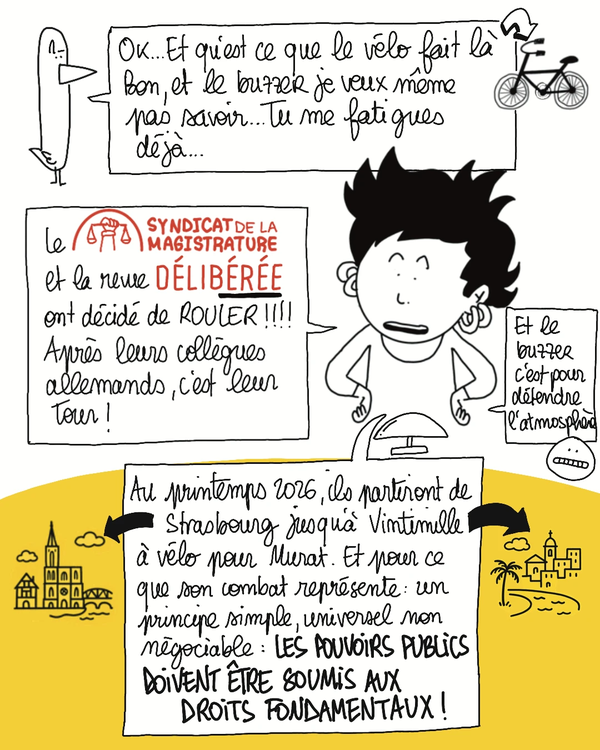 OK...Et qu'est ce que le vélo fait là
Bon, et le buzzer je veux même
pas savoir...Tu me fatigues
déjà...
Le SYNDICAT DE LA
MAGISTRATURE
et la revue DÉLIBÉRÉE
ont décidé de ROULER !!!!
Après leurs collègues
allemands, c'est leur
Tour !
Et le
buzzer
c'est pour
défendre
l'atmosphère
Au printemps 2026, ils partiront de
Strasbourg jusqu'à Vintimille
à vélo pour Murat. Et pour ce
que son combat représente : un
principe simple, universel non
négociable : LES POUVOIRS PUBLICS
DOIVENT ÊTRE SOUMIS AUX
DROITS FONDAMENTAUX !